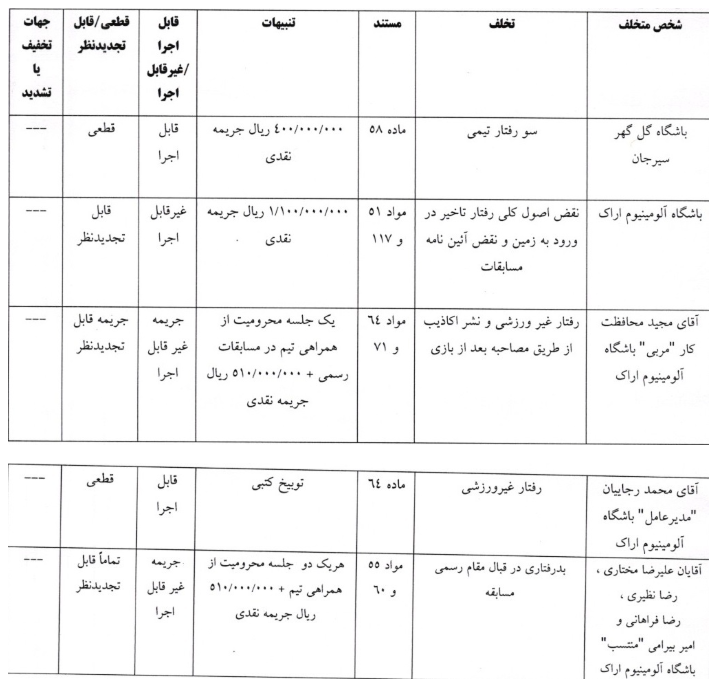 شخص متخلف | تخلف | مستند | تنبیهات | قابل اجرا /غیرقابل اجرا | قطعی/قابل تجدیدنظر | جهات تخفیف یا تشدید
باشگاه گل گهر سیرجان | سو رفتار تیمی | ماده ٥٨ | ٤٠٠/٠٠٠/٠٠٠ ریال جریمه نقدی | قابل اجرا | قطعی | ---
باشگاه آلومینیوم اراک | نقض اصول کلی رفتار تاخیر در ورود به زمین و نقض آئین نامه مسابقات | مواد ٥١ و ١١٧ | ١/١٠٠/٠٠٠/٠٠٠ ریال جریمه نقدی | غیرقابل اجرا | قابل تجدیدنظر | ---
آقای مجید محافظت کار "مربی" باشگاه آلومینیوم اراک | رفتار غیر ورزشی و نشر اکاذیب از طریق مصاحبه بعد از بازی | مواد ٦٤ و ٧١ | یک جلسه محرومیت از همراهی تیم در مسابقات رسمی + ٥١٠/٠٠٠/٠٠٠ ریال جریمه نقدی | جریمه غیر قابل اجرا | جریمه قابل تجدیدنظر | ---
آقای محمد رجاییان "مدیرعامل" باشگاه آلومینیوم اراک | رفتار غیرورزشی | ماده ٦٤ | توبیخ کتبی | قابل اجرا | قطعی | ---
آقایان علیرضا مختاری ، رضا نظیری ، رضا فراهانی و امیر بیرامی "منتسب" باشگاه آلومینیوم اراک | بدرفتاری در قبال مقام رسمی مسابقه | مواد ٥٥ و ٦٠ | هریک دو جلسه محرومیت از همراهی تیم + ٥١٠/٠٠٠/٠٠٠ ریال جریمه نقدی | جریمه غیر قابل اجرا | تماماً قابل تجدیدنظر | ---